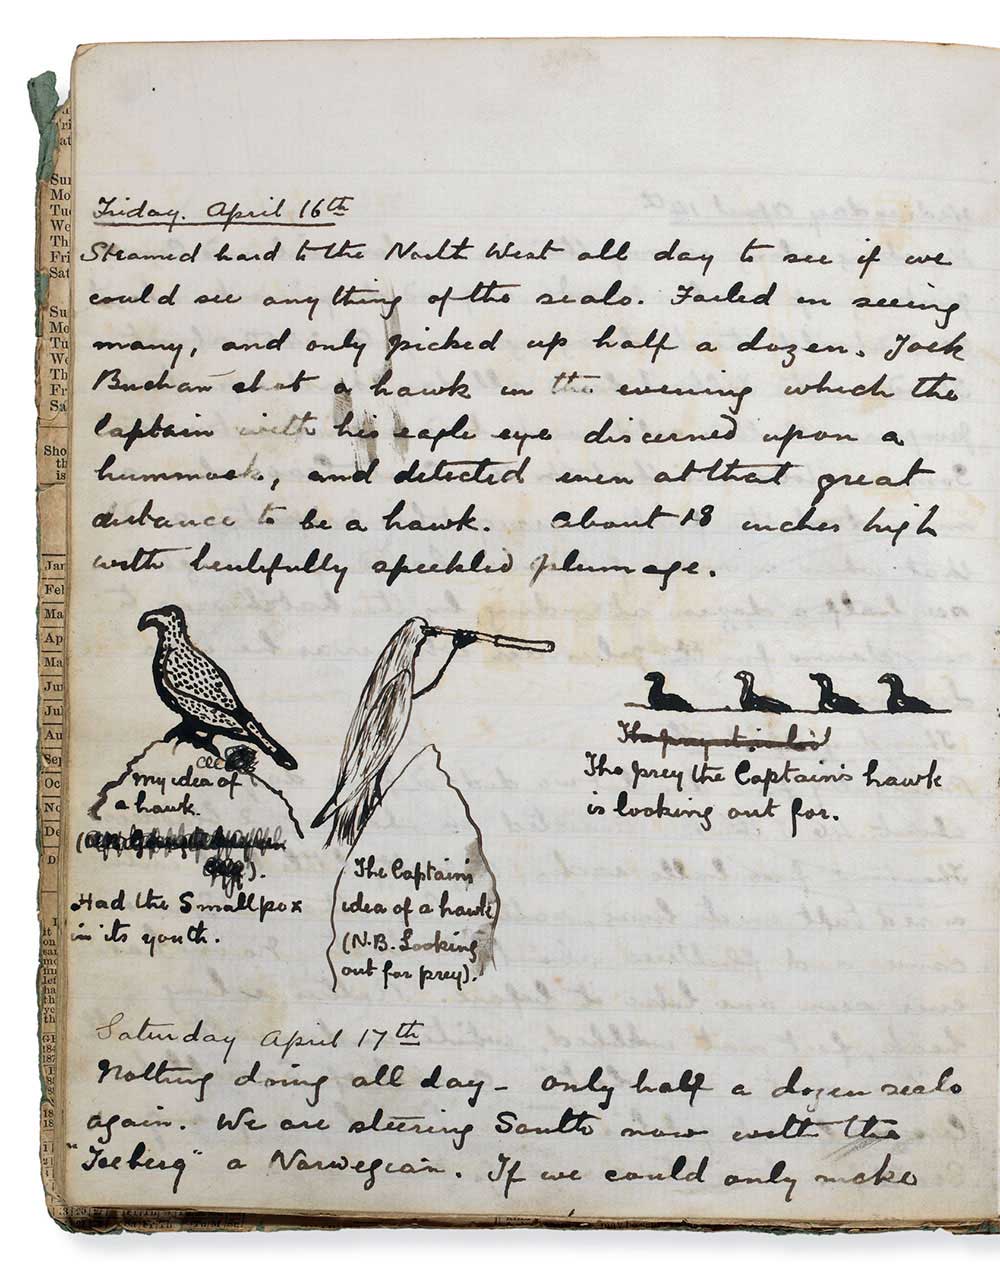 Friday. April 16th
Steamed hard to the North West all day to see if we
could see anything of the seals. Failed in seeing
many, and only picked up half a dozen. Jock
Buchan shot a hawk in the evening which the
Captain with his eagle eye discerned upon a
hummock, and detected even at that great
distance to be a hawk. About 18 inches high
with beutifully speckled plumage.
my idea of
a hawk.
Had the Smallpox
in its youth.
The Captain's
idea of a hawk
(N.B. Looking
out for prey).
The prey
The prey the Captain's hawk
is looking out for.
Saturday April 17th
Nothing doing all day - only half a dozen seals
again. We are steering South now with the
"Iceberg" a Norwegian. If we could only make